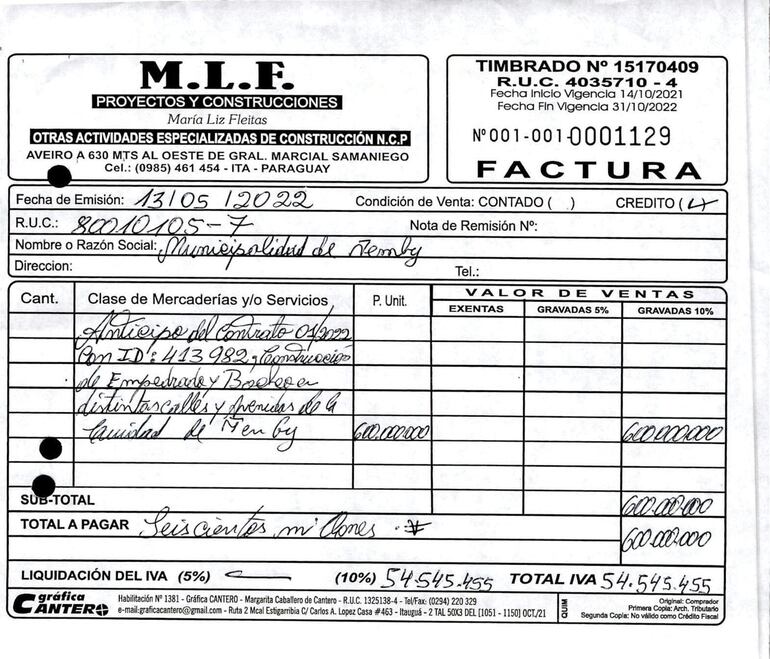 M.L.F.
PROYECTOS Y CONSTRUCCIONES
María Liz Fleitas
OTRAS ACTIVIDADES ESPECIALIZADAS DE CONSTRUCCIÓN N.C.P
AVEIRO A 630 MTS AL OESTE DE GRAL. MARCIAL SAMANIEGO
Cel.: (0985) 461 454 - ITA - PARAGUAY
TIMBRADO Nº 15170409
R.U.C. 4035710 - 4
Fecha Inicio Vigencia 14/10/2021
Fecha Fin Vigencia 31/10/2022
Nº 001-001-0001129
FACTURA
Fecha de Emisión: 13/05/2022 Condición de Venta: CONTADO ( ) CREDITO (x)
R.U.C.: 80010105-7 Nota de Remisión Nº:
Nombre o Razón Social: Municipalidad de Ñemby
Direccion: Tel.:
Cant. Clase de Mercaderías y/o Servicios P. Unit. VALOR DE VENTAS
EXENTAS GRAVADAS 5% GRAVADAS 10%
Anticipo del Contrato 01/2022
Con ID: 413982, Construccion
de Empedrado y Bacheo en
distintas calles y avenidas de la
de Ñemby 600.000.000 600.000.000
SUB-TOTAL 600.000.000
TOTAL A PAGAR Seiscientos millones 600.000.000
LIQUIDACIÓN DEL IVA (5%) (10%) 54.545.455 TOTAL IVA 54.545.455
gráfica CANTERO
Habilitación Nº 1381 - Gráfica CANTERO - Margarita Caballero de Cantero - R.U.C. 1325138-4 - Tel/Fax: (0294) 220 329
e-mail:graficacantero@gmail.com - Ruta 2 Mcal Estigarribia C/ Carlos A. Lopez Casa #463 - Itauguá - 2 TAL 50X3 DEL [1051 - 1150] OCT./21
QUIM
Original: Comprador
Primera Copia: Arch. Tributario
Segunda Copia: No válido como Crédito Fiscal